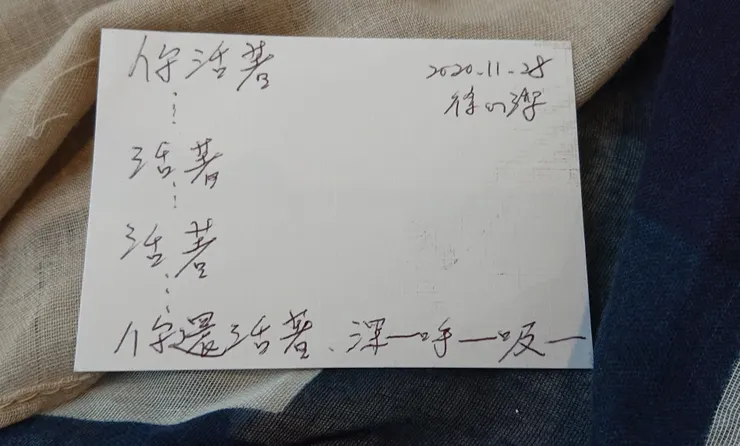 你活著
2020-11-28
⋮
活著
⋮
活著
⋮
你還活著、深一呼一吸一